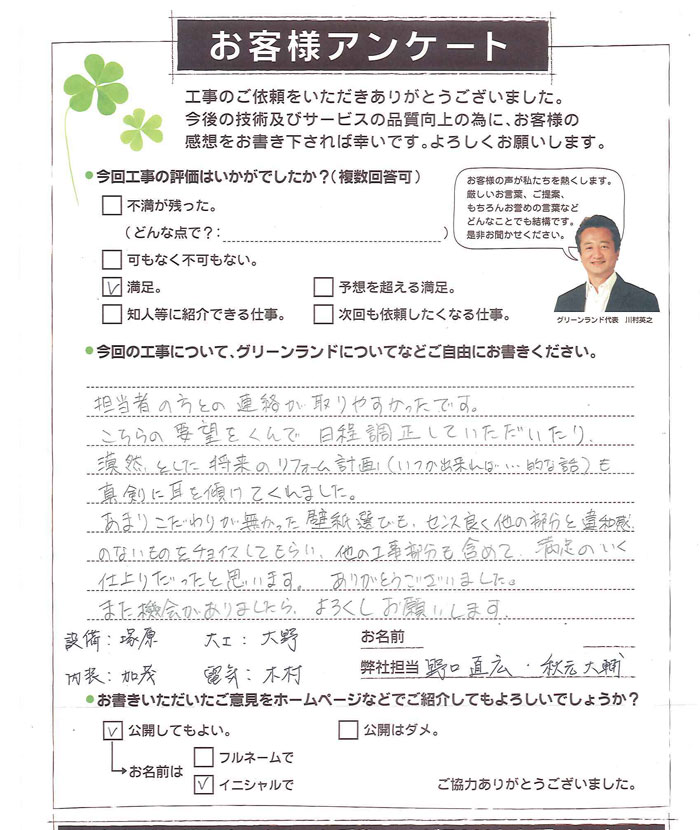 お客様アンケート
工事のご依頼をいただきありがとうございました。
今後の技術及びサービスの品質向上の為に、お客様の
感想をお書き下されば幸いです。よろしくお願いします。
●今回工事の評価はいかがでしたか？(複数回答可)
お客様の声が私たちを熱くします。
厳しいお言葉、ご提案、
もちろんお誉めの言葉など
どんなことでも結構です。
是非お聞かせください。
グリーンランド代表 川村英之
□不満が残った。
(どんな点で？: )
□可もなく不可もない。
☑満足。 □予想を超える満足。
□知人等に紹介できる仕事。 □次回も依頼したくなる仕事。
●今回の工事について、グリーンランドについてなどご自由にお書きください。
担当者の方との連絡が取りやすかったです。
こちらの要望をくんで日程調正していただいたり、
漠然とした将来のリフォーム計画(いつか出来れば…的な話)も
真剣に耳を傾けてくれました。
あまりこだわりが無かった壁紙選びも、センス良く他の部分と違和感
のないものをチョイスしてもらい、他の工事部分も含めて、満足のいく
仕上りだったと思います。 ありがとうございました。
また機会がありましたら、よろしくお願いします。
設備：塚原 大工：大野 お名前
内装：加茂 電気：木村 弊社担当 野口直広・秋元大輔
●お書きいただいたご意見をホームページなどでご紹介してもよろしいでしょうか？
☑公開してもよい。 □公開はダメ。
→お名前は □フルネームで
☑イニシャルで
ご協力ありがとうございました。